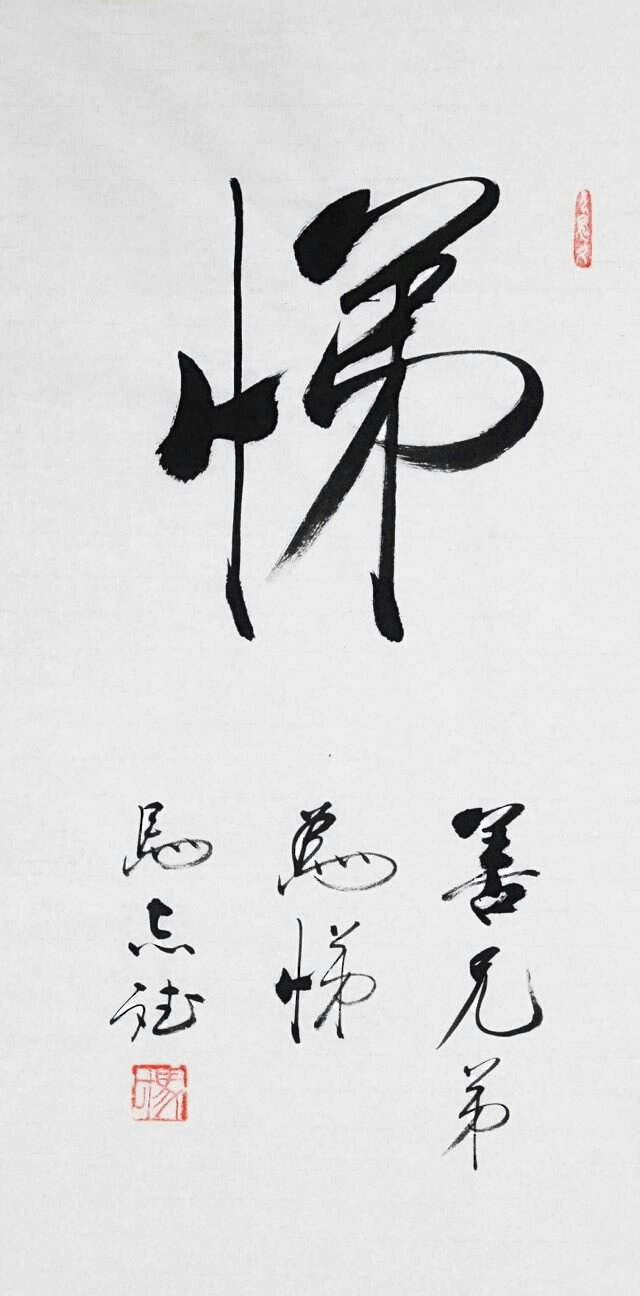 悌
善兄弟
為悌
馬志斌